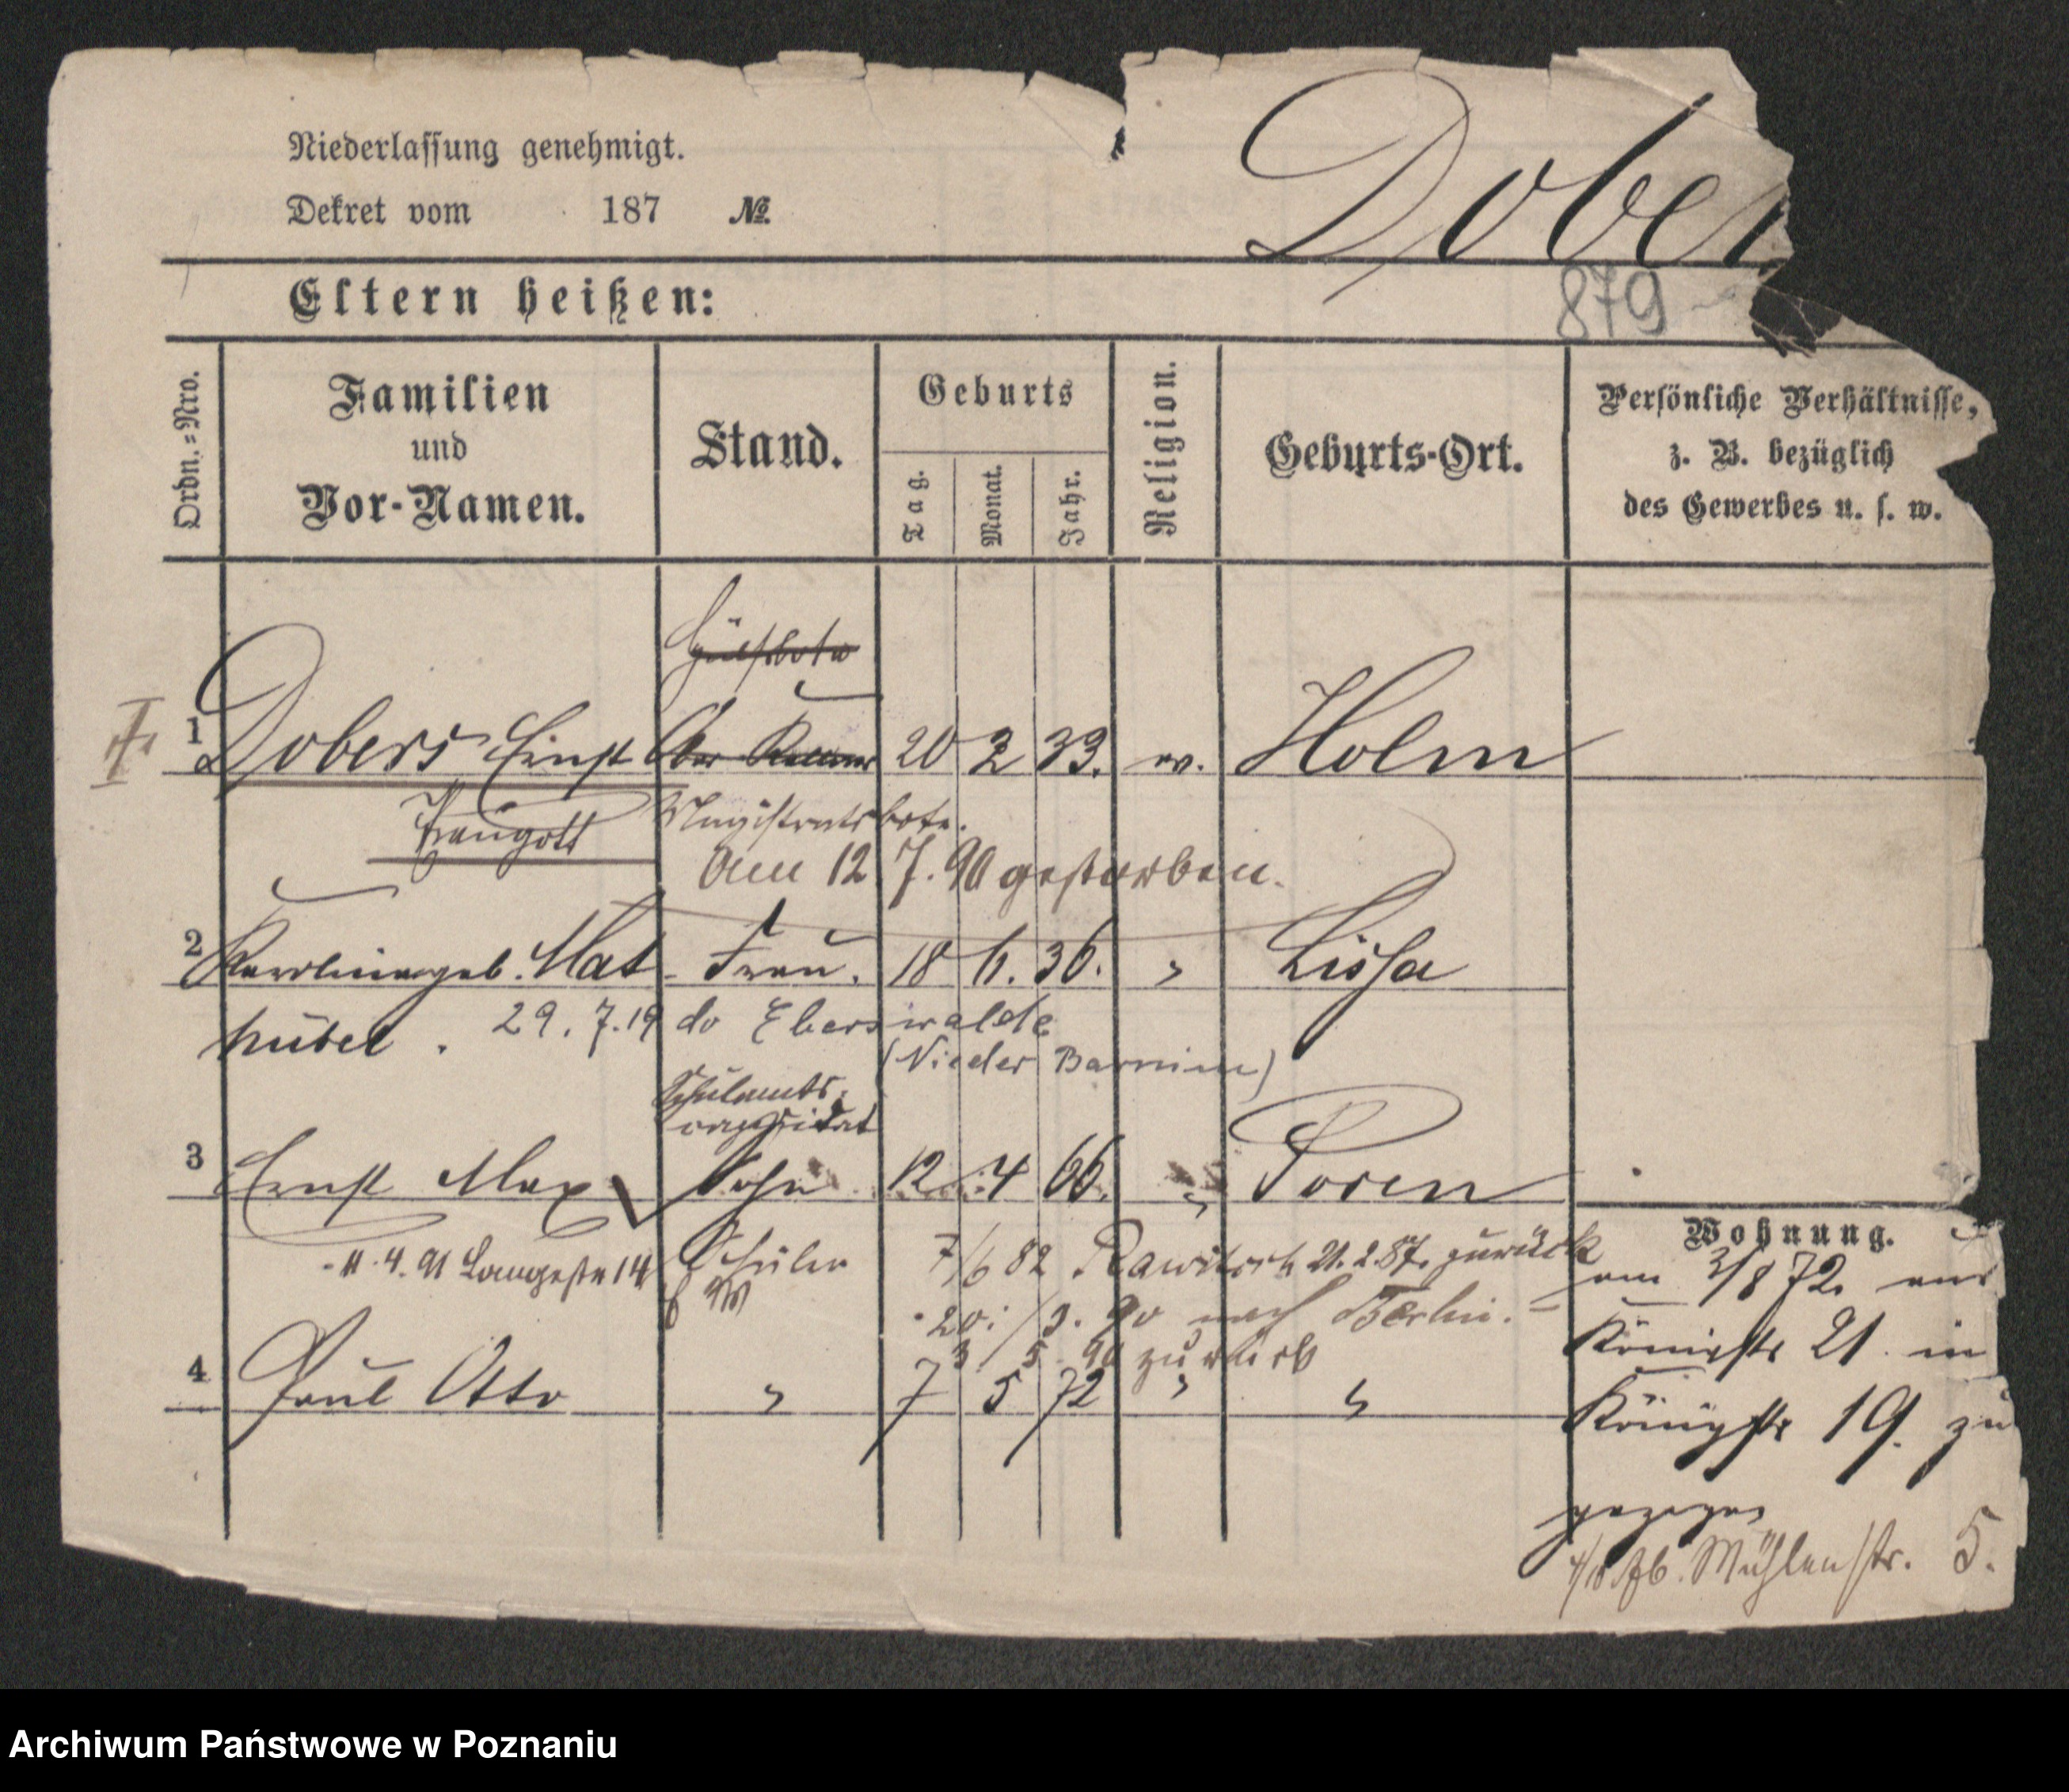 Niederlassung genehmigt.
Dekret vom 187 №
Dober
Eltern heißen:
879
Ordn.=Nro.
Familien
und
Vor-Namen.
Stand.
Geburts
Tag.
Monat.
Jahr.
Religion.
Geburts-Ort.
Persönliche Verhältnisse,
z. B. bezüglich
des Gewerbes u. s. w.
Hülfsbote
1 Dobers Ernst 20 2 33. ev. Holm
Traugott Magistratsbote.
Am 12 7. 90 gestorben.
2 Karoline geb. Mat- Frau. 18 6. 36. " Lissa
hübel. 29. 7. 19 do Eberswalde
(Nieder Barnim)
Schulamts-
3 Ernst Max Sohn 12 4 66. " Posen
11. 4. 91 Langestr 14 Schüler 7/6 82 Rawitsch 21. 2. 87. zurück
20. /3. 90 nach Berlin.
3/5 90 zurück
4 Paul Otto " 7 5 72 " "
Wohnung.
am 3/8 72. aus
Königstr 21. in
Königstr 19. zu
gezogen
Mühlenstr. 5.
Archiwum Państwowe w Poznaniu